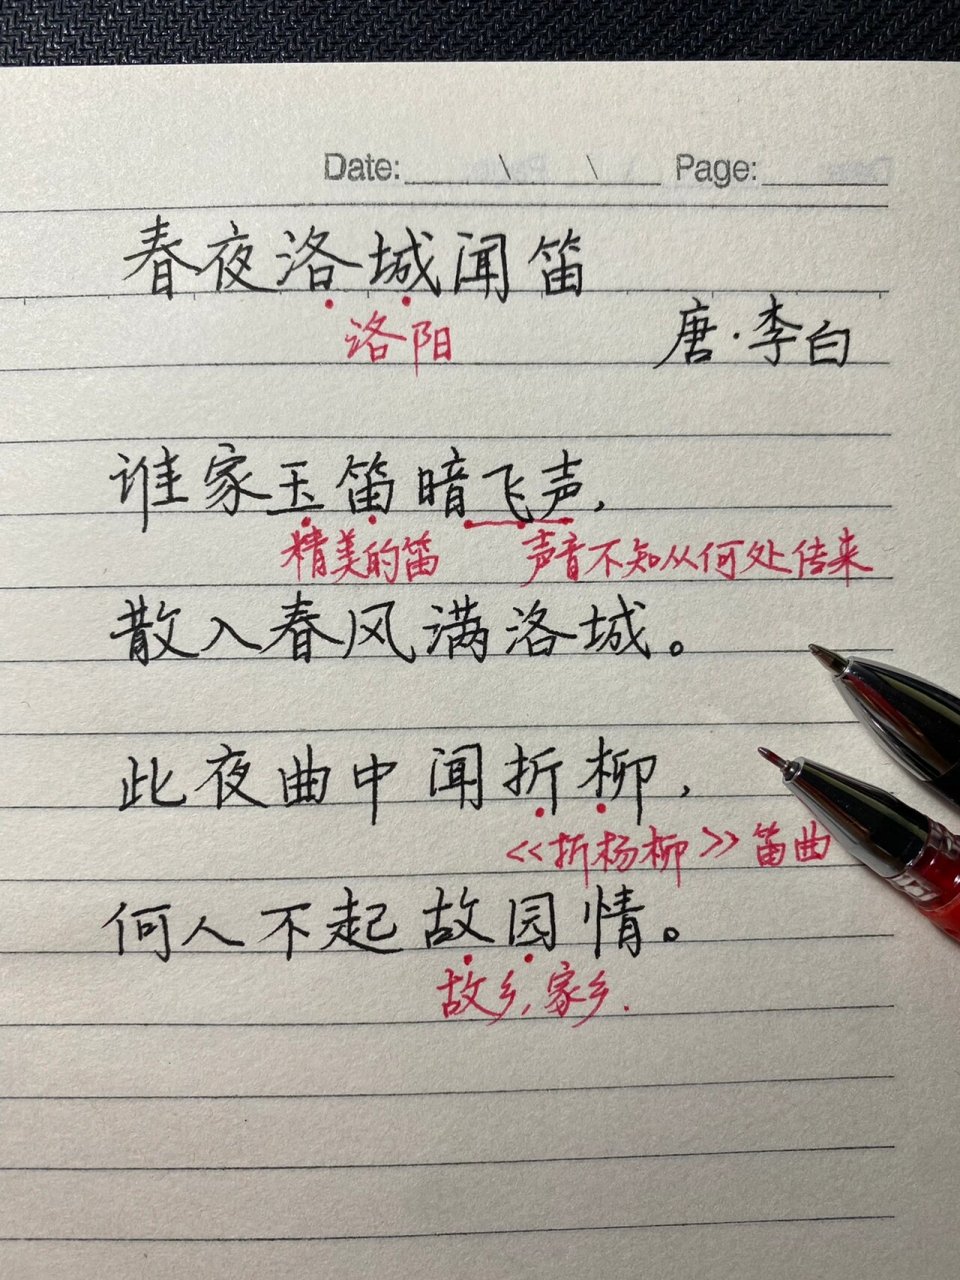 Date: \ \ Page:
春夜洛城闻笛
洛阳
唐·李白
谁家玉笛暗飞声,
精美的笛 声音不知从何处传来
散入春风满洛城。
此夜曲中闻折柳,
《折杨柳》笛曲
何人不起故园情。
故乡,家乡.